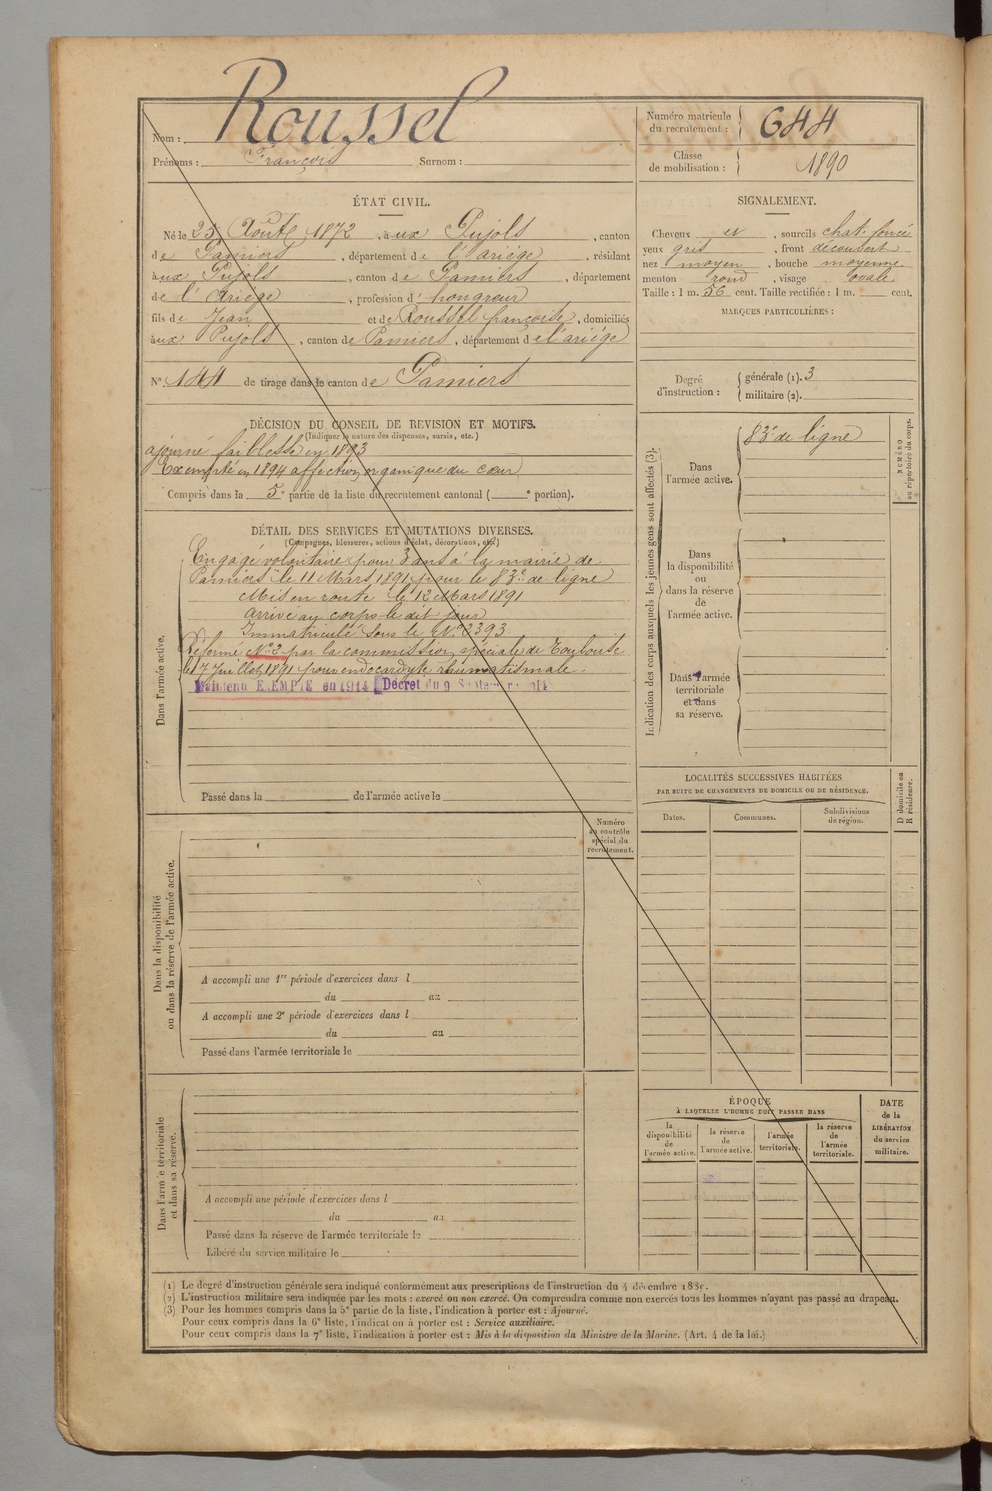 Nom : Roussel
Prénoms : François Surnom :
Numéro matricule du recrutement : 644
Classe de mobilisation : 1890
ÉTAT CIVIL.
Né le 25 Août 1872, à aux Pujols, canton
de Pamiers, département de l'Ariège, résidant
à aux Pujols, canton de Pamiers, département
de l'Ariège, profession d' hongreur
fils de Jean et de Roussel françoise, domiciliés
à aux Pujols, canton de Pamiers, département de l'ariège
N° 144 de tirage dans le canton de Pamiers
SIGNALEMENT.
Cheveux et, sourcils chat. foncé
yeux gris, front découvert
nez moyen, bouche moyenne
menton rond, visage ovale
Taille : 1 m. 56 cent. Taille rectifiée : 1 m. cent.
MARQUES PARTICULIÈRES :
Degré d'instruction : générale (1). 3
militaire (2).
DÉCISION DU CONSEIL DE REVISION ET MOTIFS.
(Indiquer la nature des dispenses, sursis, etc.)
ajourné faiblesse en 1893
Exempté en 1894 affection organique du cœur
Compris dans la 5e partie de la liste du recrutement cantonal ( e portion).
DÉTAIL DES SERVICES ET MUTATIONS DIVERSES.
(Campagnes, blessures, actions d'éclat, décorations, etc.)
Dans l'armée active.
Engagé volontaire pour 3 ans à la mairie de
Pamiers le 11 Mars 1891 pour le 83e de ligne
Mis en route le 12 Mars 1891
arrivé au corps le dit jour
Immatriculé sous le N° 2393
Réformé N° 2 par la commission spéciale de Toulouse
le 17 Juillet 1891 pour endocardyte rhumatismale.
Maintenu EXEMPTÉ en 1914 Décret du 9 Septembre 1914
Passé dans la de l'armée active le
Numéro au contrôle spécial du recrutement.
Dans la disponibilité
ou dans la réserve de l'armée active.
A accompli une 1re période d'exercices dans l
du au
A accompli une 2e période d'exercices dans l
du au
Passé dans l'armée territoriale le
Dans l'armée territoriale
et dans sa réserve.
A accompli une période d'exercices dans l
du au
Passé dans la réserve de l'armée territoriale le
Libéré du service militaire le
Indication des corps auxquels les jeunes gens sont affectés (3).
Dans l'armée active.
83e de ligne
NUMÉRO au répertoire du corps.
Dans
la disponibilité
ou
dans la réserve
de
l'armée active.
Dans l'armée
territoriale
et dans
sa réserve.
LOCALITÉS SUCCESSIVES HABITÉES
PAR SUITE DE CHANGEMENTS DE DOMICILE OU DE RÉSIDENCE.
Dates.
Communes.
Subdivisions de région.
D domicile ou
R résidence.
ÉPOQUE
À LAQUELLE L'HOMME DOIT PASSER DANS
la disponibilité de l'armée active.
la réserve de l'armée active.
l'armée territoriale.
la réserve de l'armée territoriale.
DATE
de la
LIBÉRATION
du service
militaire.
(1) Le degré d'instruction générale sera indiqué conformément aux prescriptions de l'instruction du 4 décembre 1889.
(2) L'instruction militaire sera indiquée par les mots : exercé ou non exercé. On comprendra comme non exercés tous les hommes n'ayant pas passé au drapeau.
(3) Pour les hommes compris dans la 5e partie de la liste, l'indication à porter est : Ajourné.
Pour ceux compris dans la 6e liste, l'indication à porter est : Service auxiliaire.
Pour ceux compris dans la 7e liste, l'indication à porter est : Mis à la disposition du Ministre de la Marine. (Art. 4 de la loi.)